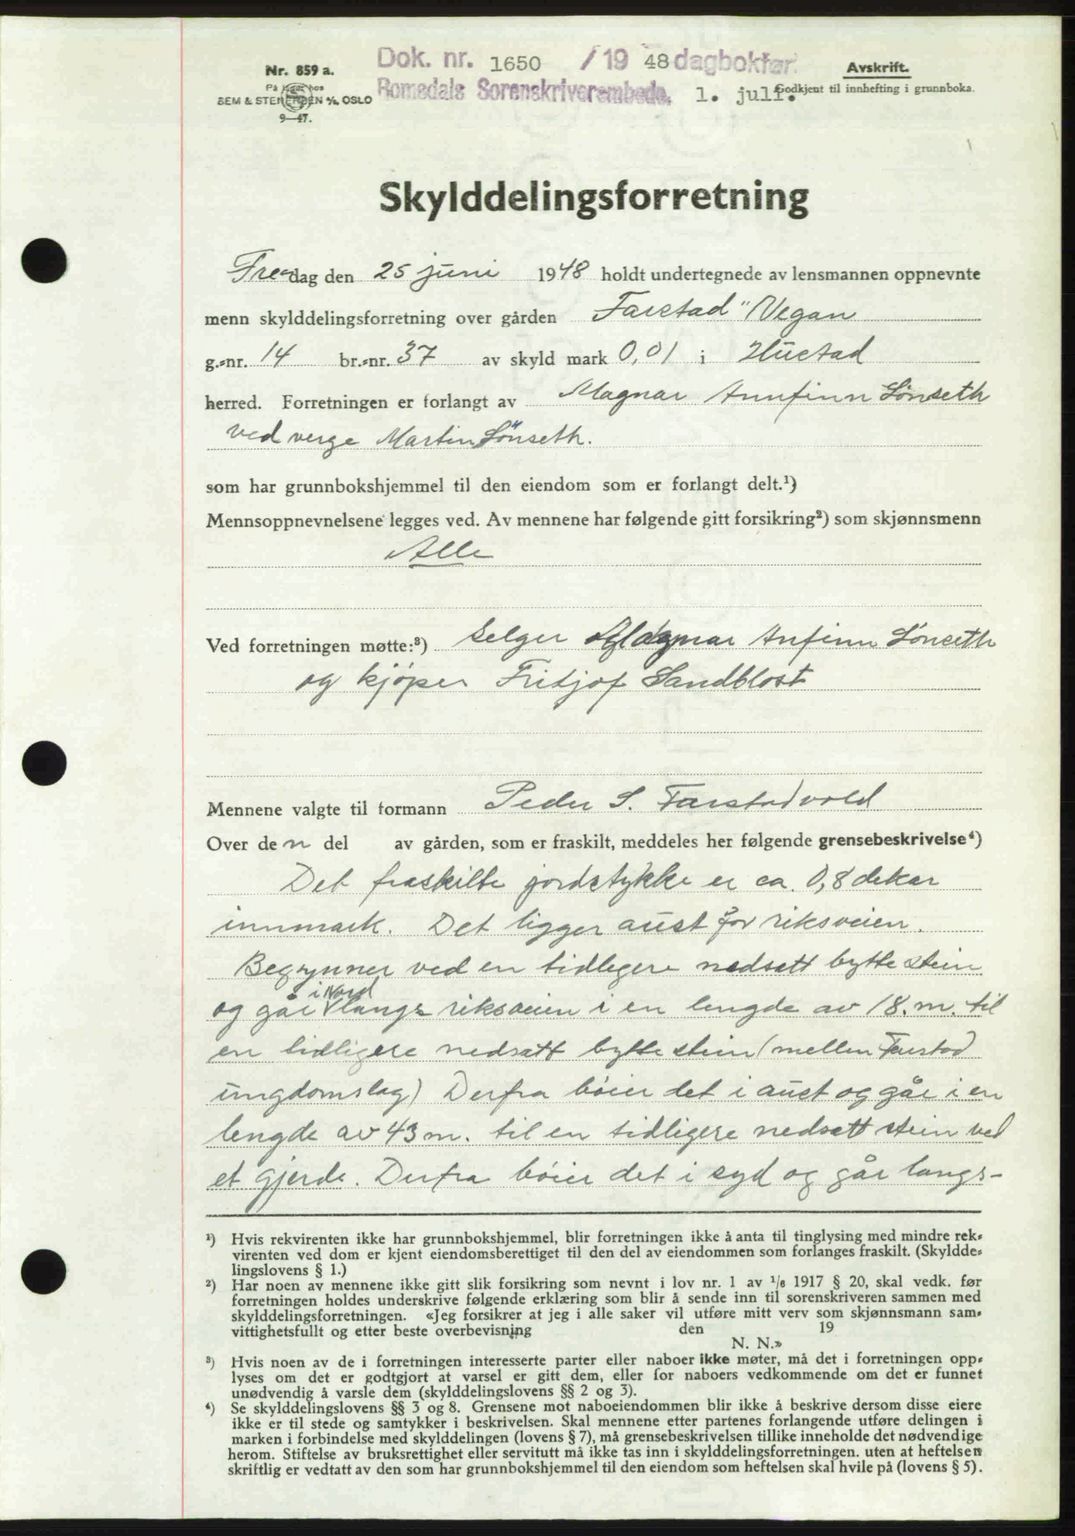 Nr. 859 a.
På lager hos
SEM & STENERSEN A/S, OSLO
9—47.
Dok. nr. 1650 /19 48 dagbokført
Romsdals Sorenskriverembede. 1. juli.
Avskrift.
Godkjent til innhefting i grunnboka.
Skylddelingsforretning
Fredag den 25 juni 1948 holdt undertegnede av lensmannen oppnevnte
menn skylddelingsforretning over gården Farstad "Vegan
g.-nr. 14 br.-nr. 37 av skyld mark 0,01 i Hustad
herred. Forretningen er forlangt av Magnar Annfinn Lönseth
ved verge Martin Lönseth.
som har grunnbokshjemmel til den eiendom som er forlangt delt.¹)
Mennsoppnevnelsene legges ved. Av mennene har følgende gitt forsikring²) som skjønnsmenn
Alle
Ved forretningen møtte:³) Selger Magnar Anfinn Lönseth
og kjöper Fritjof Sandblost
Mennene valgte til formann Peder S. Farstadvold
Over den del av gården, som er fraskilt, meddeles her følgende grensebeskrivelse⁴)
Det fraskilte jordstykke er ca. 0,8 dekar
innmark. Det ligger aust for riksveien.
Begynner ved en tidligere nedsatt bytte stein
og går i Nord langs riksveien i en lengde av 18. m. til
en tidligere nedsatt bytte stein (mellen Farstad
ungdomslag) Derfra böier det i aust og går i en
lengde av 43 m. til en tidligere nedsatt stein ved
et gjerde. Derfra böier det i syd og går langs-
¹) Hvis rekvirenten ikke har grunnbokshjemmel, blir forretningen ikke å anta til tinglysing med mindre rek-
virenten ved dom er kjent eiendomsberettiget til den del av eiendommen som forlanges fraskilt. (Skyldde-
lingslovens § 1.)
²) Har noen av mennene ikke gitt slik forsikring som nevnt i lov nr. 1 av 1/6 1917 § 20, skal vedk. før
forretningen holdes underskrive følgende erklæring som blir å sende inn til sorenskriveren sammen med
skylddelingsforretningen. «Jeg forsikrer at jeg i alle saker vil utføre mitt verv som skjønnsmann sam-
vittighetsfullt og etter beste overbevisning den 19
N. N.»
³) Hvis noen av de i forretningen interesserte parter eller naboer ikke møter, må det i forretningen opp-
lyses om det er godtgjort at varsel er gitt dem, eller for naboers vedkommende om det er funnet
unødvendig å varsle dem (skylddelingslovens §§ 2 og 3).
⁴) Se skylddelingslovens §§ 3 og 8. Grensene mot naboeiendommen blir ikke å beskrive dersom disse eiere
ikke er til stede og samtykker i beskrivelsen. Skal mennene etter partenes forlangende utføre delingen i
marken i forbindelse med skylddelingen (lovens § 7), må grensebeskrivelsen tillike inneholde det nødvendige
herom. Stiftelse av bruksrettighet eller servitutt må ikke tas inn i skylddelingsforretningen. uten at heftelsen
skriftlig er vedtatt av den som har grunnbokshjemmel til den eiendom som heftelsen skal hvile på (lovens § 5).